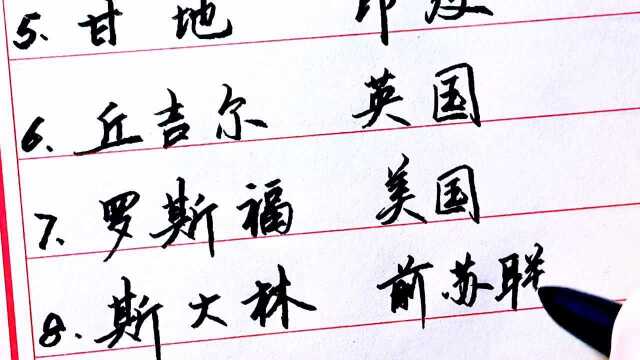 5. 甘地 印度
6. 丘吉尔 英国
7. 罗斯福 美国
8. 斯大林 前苏联